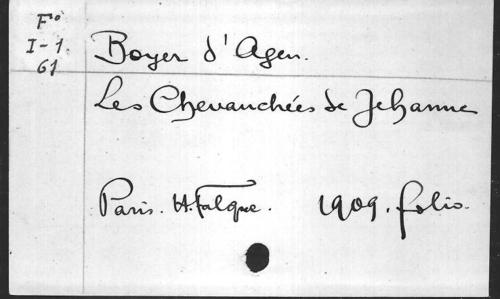 Fº
I-1.
61
Boyer d'Agen.
Les Chevauchées de Jehanne
Paris. H. Falque. 1909. folio.